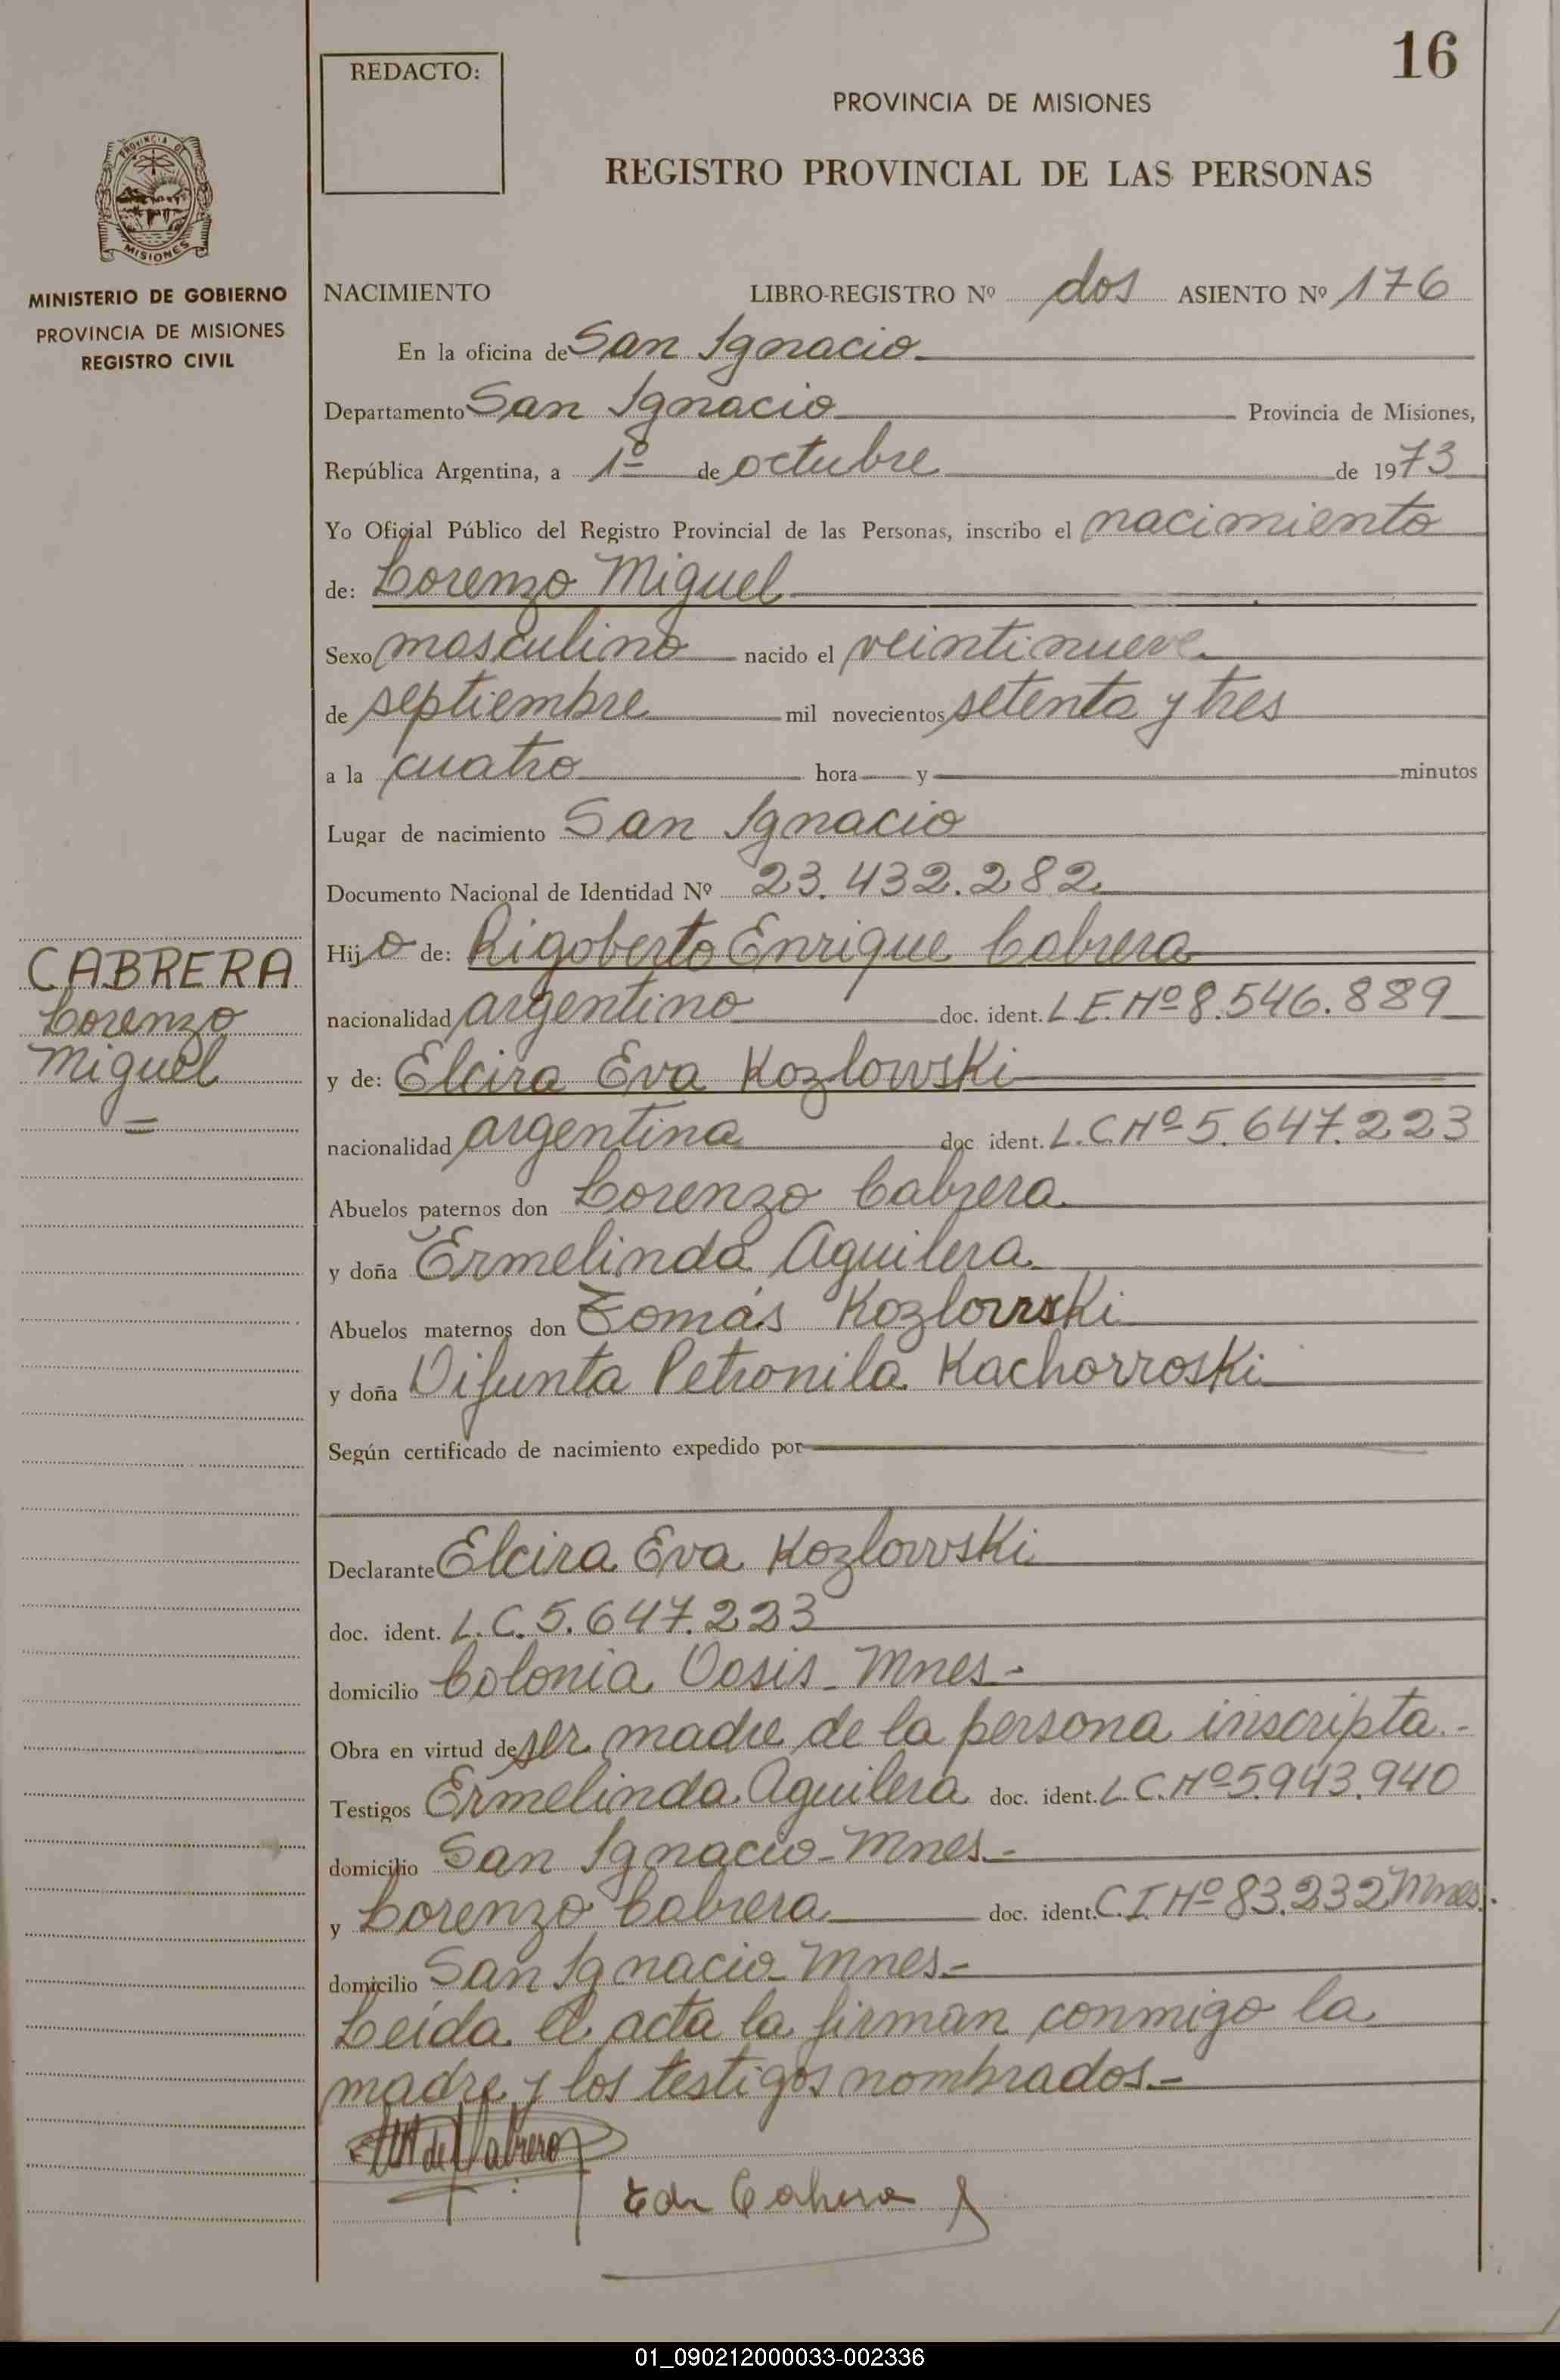 16
REDACTO:
PROVINCIA DE MISIONES
REGISTRO PROVINCIAL DE LAS PERSONAS
PROVINCIA DE
MISIONES
MINISTERIO DE GOBIERNO
PROVINCIA DE MISIONES
REGISTRO CIVIL
NACIMIENTO LIBRO-REGISTRO Nº dos ASIENTO Nº 176
En la oficina de San Ignacio
Departamento San Ignacio Provincia de Misiones,
República Argentina, a 1º de octubre de 1973
Yo Oficial Público del Registro Provincial de las Personas, inscribo el nacimiento
de: Lorenzo Miguel
Sexo masculino nacido el veintinueve
de septiembre mil novecientos setenta y tres
a la cuatro hora y minutos
Lugar de nacimiento San Ignacio
Documento Nacional de Identidad Nº 23.432.282
CABRERA
Lorenzo
Miguel
Hijo de: Rigoberto Enrique Cabrera
nacionalidad argentino doc. ident. L.E.Nº 8.546.889
y de: Elcira Eva Kozlowski
nacionalidad argentina doc ident. L.C.Nº 5.647.223
Abuelos paternos don Lorenzo Cabrera
y doña Ermelinda Aguilera
Abuelos maternos don Tomás Kozlowski
y doña Difunta Petronila Kachorroski
Según certificado de nacimiento expedido por
Declarante Elcira Eva Kozlowski
doc. ident. L.C. 5.647.223
domicilio Colonia Oasis - Mnes -
Obra en virtud de ser madre de la persona inscripta.-
Testigos Ermelinda Aguilera doc. ident. L.C.Nº 5.943.940
domicilio San Ignacio - Mnes. -
y Lorenzo Cabrera doc. ident. C.I.Nº 83.232 Mnes.
domicilio San Ignacio - Mnes.-
Leída el acta la firman conmigo la
madre y los testigos nombrados.-
de Cabrera
E de Cabrera
01_090212000033-002336